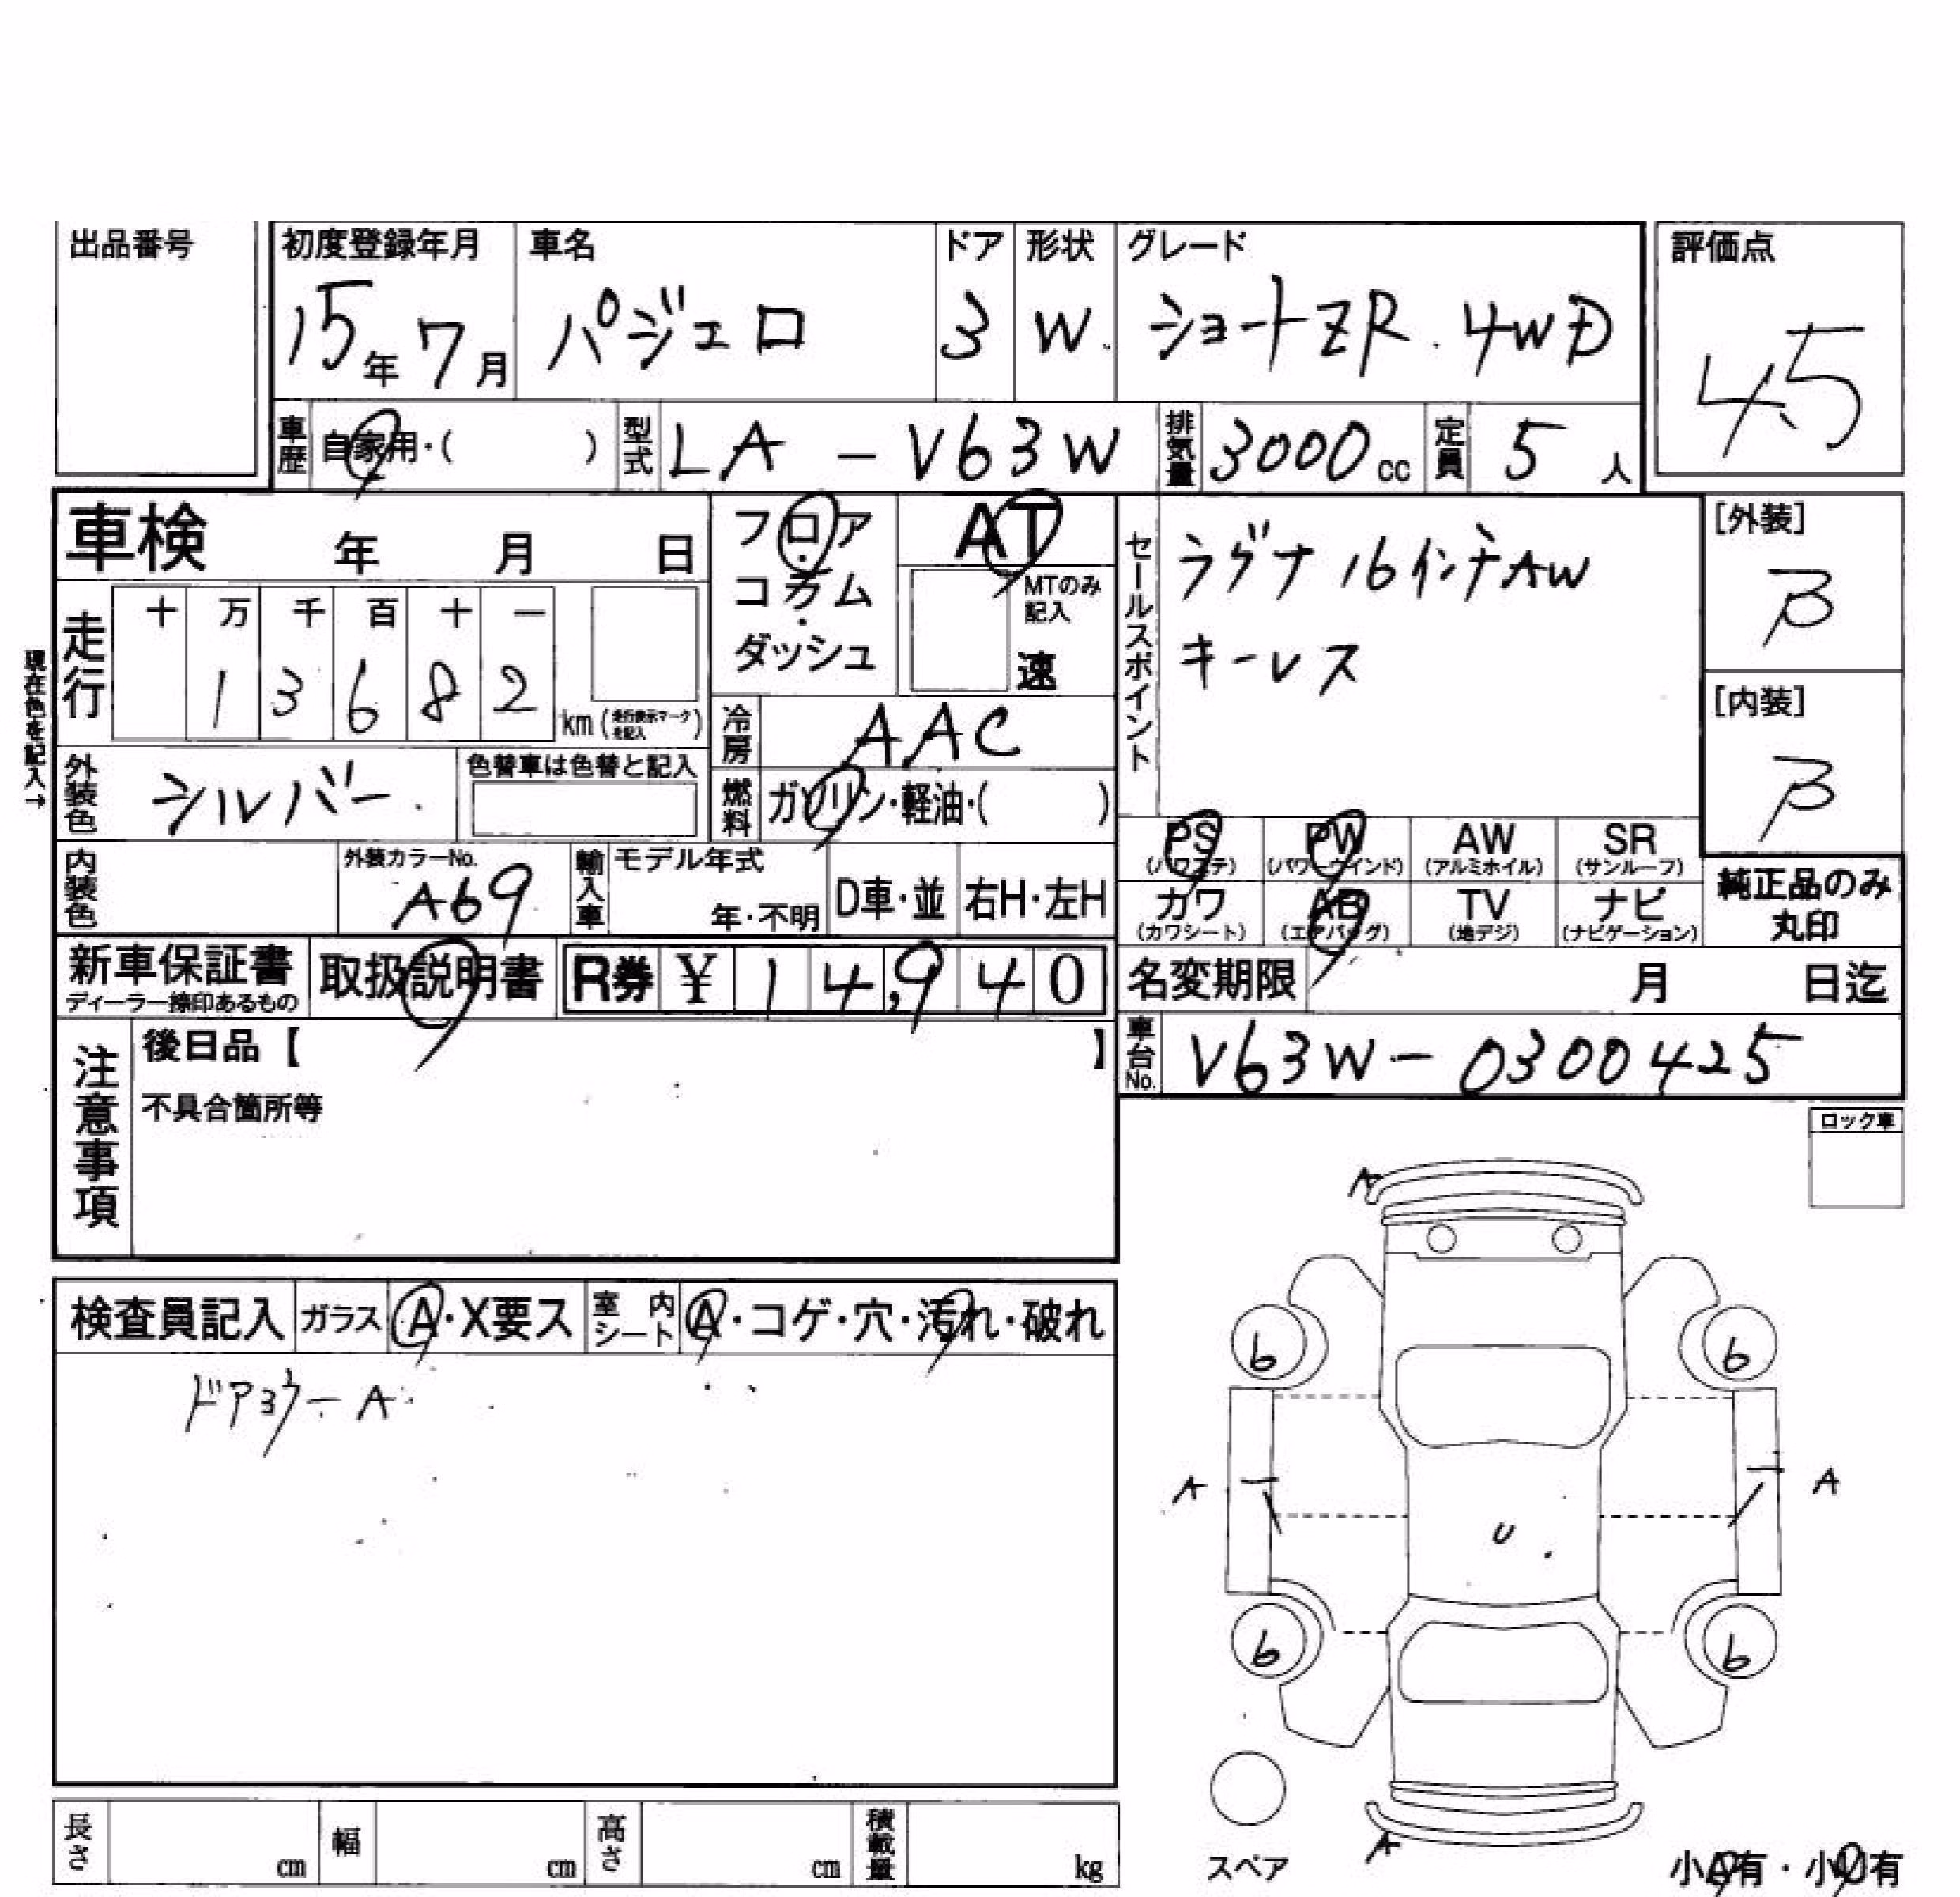 出品番号
初度登録年月
15年 7月
車名
パジェロ
ドア
3
形状
W
グレード
ショートZR. 4WD
評価点
4.5
車歴
自家用・( )
型式
LA - V63W
排気量
3000cc
定員
5人
車検 年 月 日
現在色を記入→
走行
十 万 千 百 十 一
1 3 6 8 2
km (走行表示マークを記入)
フロア
・
コラム
・
ダッシュ
AT
MTのみ記入
速
冷房
AAC
燃料
ガソリン・軽油・( )
セールスポイント
ラグナ 16インチAW
キーレス
[外装]
B
[内装]
B
外装色
シルバー
色替車は色替と記入
内装色
外装カラーNo.
A69
輸入車
モデル年式
年・不明
D車・並
右H・左H
PS (パワステ)
PW (パワーウインド)
AW (アルミホイル)
SR (サンルーフ)
カワ (カワシート)
AB (エアバッグ)
TV (地デジ)
ナビ (ナビゲーション)
純正品のみ
丸印
新車保証書
ディーラー捺印あるもの
取扱説明書
R券 ¥ 1 4,9 4 0
名変期限 月 日迄
車台No.
V63W - 0300425
注意事項
後日品【 】
不具合箇所等
ロック車
検査員記入
ガラス
A・X要ス
室内シート
A・コゲ・穴・汚れ・破れ
A
6 6
A A
U
6 6
A
スペア
小A有・小U有
長さ cm
幅 cm
高さ cm
積載量 kg